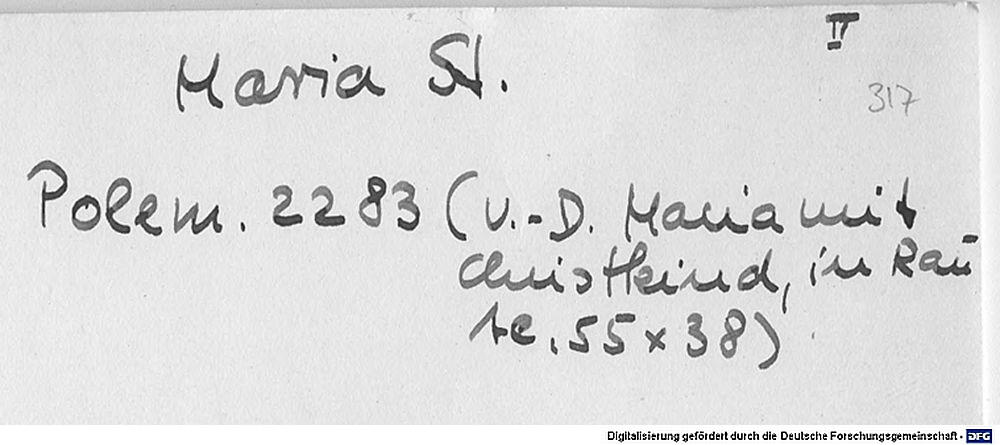 II
Maria St.
317
Polem. 2283 (V.-D. Maria mit
Christkind, in Rau-
te. 55 x 38)
Digitalisierung gefördert durch die Deutsche Forschungsgemeinschaft - DFG